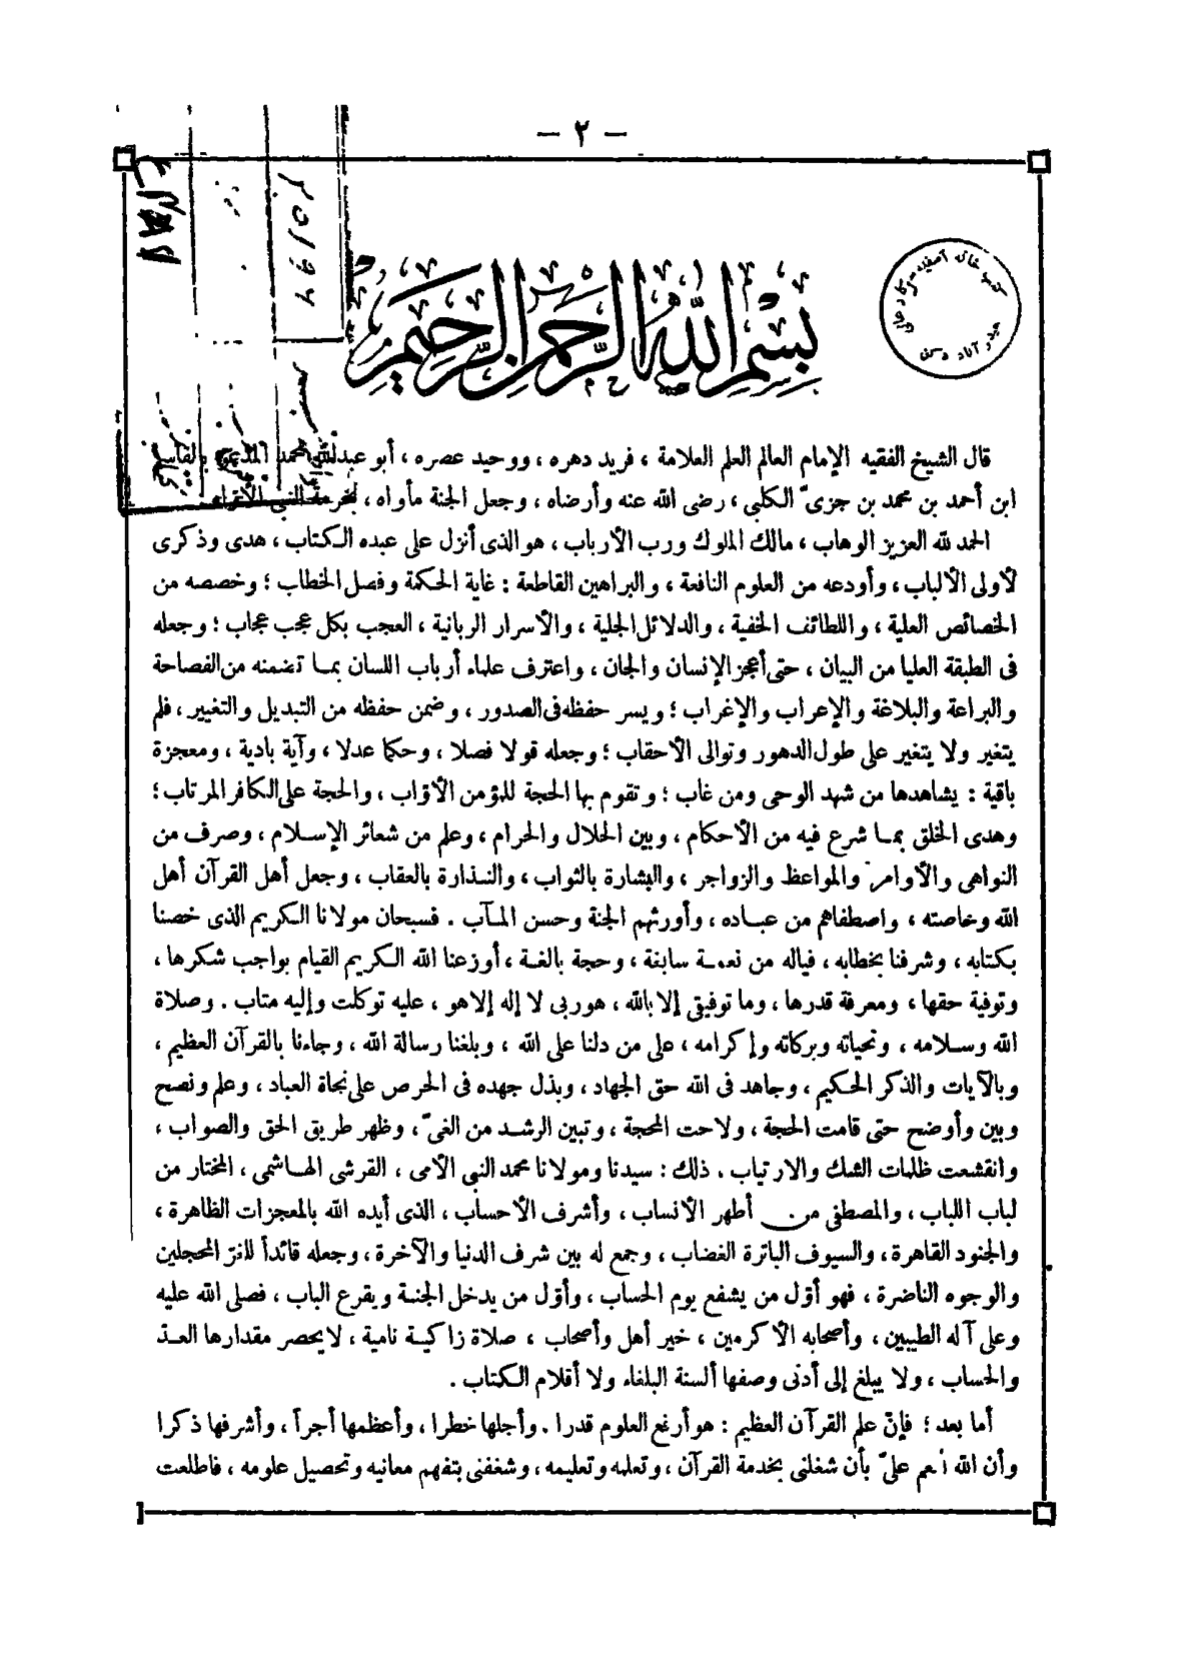 — ٢ —
كتب خانه آصفيه سركار عالى
حيدر آباد دكن
بسم الله الرحمن الرحيم
قال الشيخ الفقيه الإمام العالم العلم العلامة ، فريد دهره ، ووحيد عصره ، أبو عبدالله محمد المدعو بالقاسم
ابن أحمد بن محمد بن جزىّ الكلبي ، رضى الله عنه وأرضاه ، وجعل الجنة مأواه ، بحرمة النبي الأواه
الحمد لله العزيز الوهاب ، مالك الملوك ورب الأرباب ، هو الذى أنزل على عبده الكتاب ، هدى وذكرى
لأولى الألباب ، وأودعه من العلوم النافعة ، والبراهين القاطعة : غاية الحكمة وفصل الخطاب ؛ وخصصه من
الخصائص العلية ، واللطائف الخفية ، والدلائل الجلية ، والأسرار الربانية ، العجب بكل عجب عجاب ؛ وجعله
فى الطبقة العليا من البيان ، حتى أعجز الإنسان والجان ، واعترف علماء أرباب اللسان بمـا تضمنه من الفصاحة
والبراعة والبلاغة والإعراب والإغراب ؛ ويسر حفظه فى الصدور ، وضمن حفظه من التبديل والتغيير ، فلم
يتغير ولا يتغير على طول الدهور وتوالى الأحقاب ؛ وجعله قولا فصلا ، وحكما عدلا ، وآية بادية ، ومعجزة
باقية : يشاهدها من شهد الوحى ومن غاب ؛ وتقوم بها الحجة للمؤمن الأوّاب ، والحجة على الكافر المرتاب ؛
وهدى الخلق بمـا شرع فيه من الأحكام ، وبين الحلال والحرام ، وعلم من شعائر الإسلام ، وصرف من
النواهى والأوامر والمواعظ والزواجر ، والبشارة بالثواب ، والنـذارة بالعقاب ، وجعل أهل القرآن أهل
الله وخاصته ، واصطفاهم من عبـاده ، وأورثهم الجنة وحسن المـآب . فسبحان مولانا الكريم الذى خصنا
بكتابه ، وشرفنا بخطابه ، فياله من نعمـة سابغة ، وحجة بالغـة ، أوزعنا الله الكريم القيام بواجب شكرها ،
وتوفية حقها ، ومعرفة قدرها ، وما توفيقى إلا بالله ، هو ربى لا إله إلا هو ، عليه توكلت وإليه متاب . وصلاة
الله وسـلامه ، وتحياته وبركاته وإكرامه ، على من دلنا على الله ، وبلغنا رسالة الله ، وجاءنا بالقرآن العظيم ،
وبالآيات والذكر الحكيم ، وجاهد فى الله حق الجهاد ، وبذل جهده فى الحرص على نجاة العباد ، وعلم ونصح
وبين وأوضح حتى قامت الحجة ، ولاحت المحجة ، وتبين الرشـد من الغىّ ، وظهر طريق الحق والصواب ،
وانقشعت ظلمات الشك والارتياب . ذلك : سيدنا ومولانا محمد النبي الأمى ، القرشى الهـاشمى ، المختار من
لباب اللباب ، والمصطفى من أطهر الأنساب ، وأشرف الأحساب ، الذى أيده الله بالمعجزات الظاهرة ،
والجنود القاهرة ، والسيوف الباترة الغضاب ، وجمع له بين شرف الدنيا والآخرة ، وجعله قائداً للغرّ المحجلين
والوجوه الناضرة ، فهو أوّل من يشفع يوم الحساب ، وأوّل من يدخل الجنـة ويقرع الباب ، فصلى الله عليه
وعلى آله الطيبين ، وأصحابه الأكرمين ، خير أهل وأصحاب ، صلاة زاكيـة نامية ، لا يحصر مقدارها العـدّ
والحساب ، ولا يبلغ إلى أدنى وصفها ألسنة البلغاء ولا أقلام الكتاب .
أما بعد ؛ فإنّ علم القرآن العظيم : هو أرفع العلوم قدرا . وأجلها خطرا ، وأعظمها أجراً ، وأشرفها ذكرا
وأن الله أنعم علىّ بأن شغلنى بخدمة القرآن ، وتعلمه وتعليمه ، وشغفنى بتفهم معانيه وتحصيل علومه ، فاطلعت